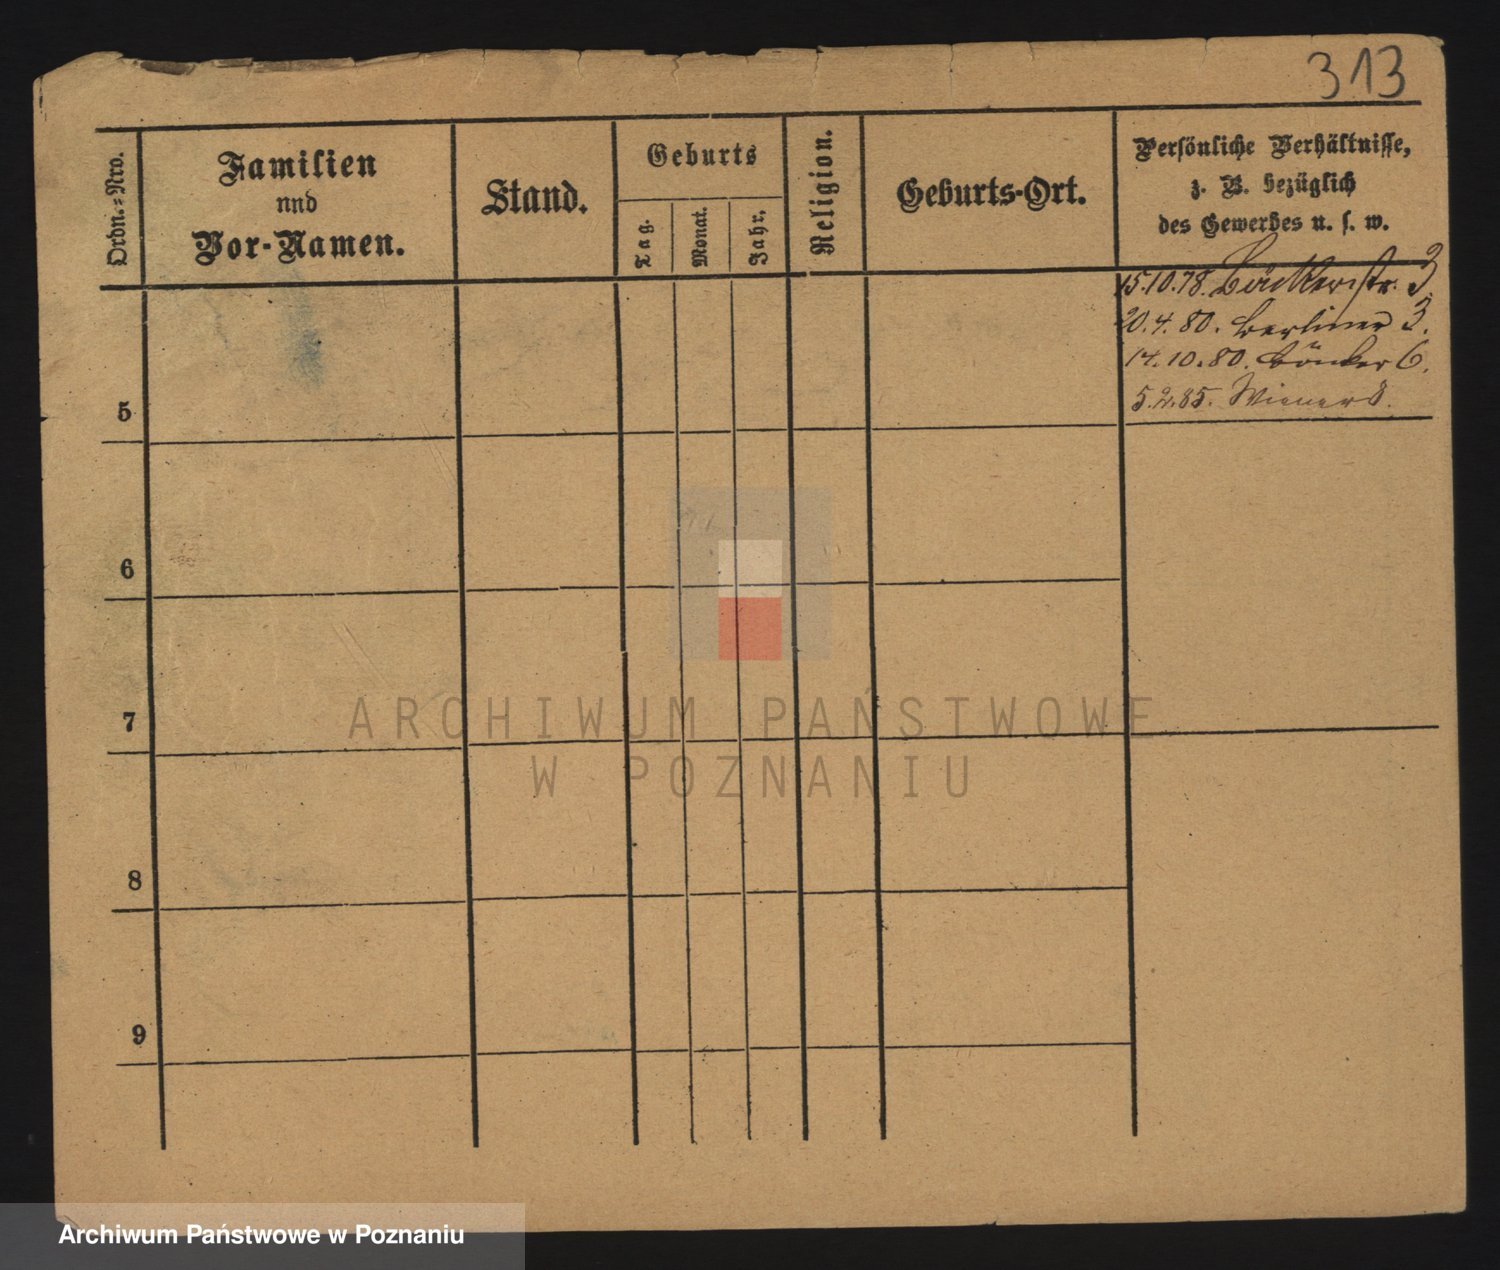 313
Ordn.=Nro.
Familien
nnd
Vor-Namen.
Stand.
Geburts
Tag.
Monat.
Jahr.
Religion.
Geburts-Ort.
Persönliche Verhältnisse,
z. B. bezüglich
des Gewerbes u. s. w.
15.10.78. Bäckerstr. 3
20.4.80. Berliner 3.
14.10.80. 6.
5.2.85. Wiener 8.
5
6
7
8
9
ARCHIWUM PAŃSTWOWE
W POZNANIU
Archiwum Państwowe w Poznaniu